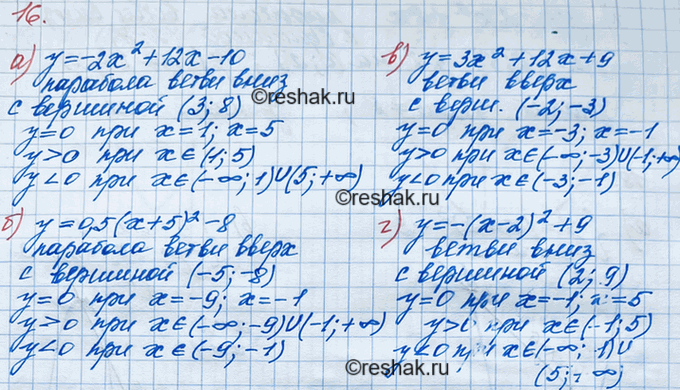 16.
а) y=-2x²+12x-10
парабола ветви вниз
с вершиной (3; 8)
y=0 при x=1; x=5
y>0 при x∈(1; 5)
y<0 при x∈(-∞; 1)∪(5; +∞)
б) y=0,5(x+5)²-8
парабола ветви вверх
с вершиной (-5; -8)
y=0 при x=-9; x=-1
y>0 при x∈(-∞; -9)∪(-1; +∞)
y<0 при x∈(-9; -1)
в) y=3x²+12x+9
ветви вверх
с верш. (-2; -3)
y=0 при x=-3; x=-1
y>0 при x∈(-∞; -3)∪(-1; +∞)
y<0 при x∈(-3; -1)
г) y=-(x-2)²+9
ветви вниз
с вершиной (2; 9)
y=0 при x=-1; x=5
y>0 при x∈(-1; 5)
y<0 при x∈(-∞; -1)∪
(5; -∞)
©reshak.ru
©reshak.ru
©reshak.ru